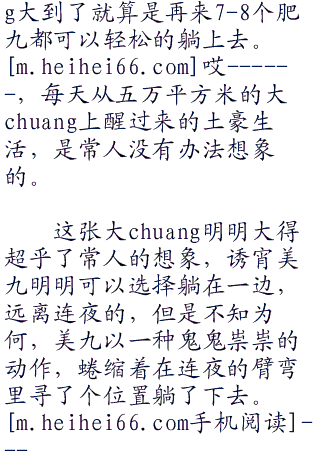 g大到了就算是再来7-8个肥
九都可以轻松的躺上去。
[m.heihei66.com]哎-----
-，每天从五万平方米的大
chuang上醒过来的土豪生
活，是常人没有办法想象
的。
这张大chuang明明大得
超乎了常人的想象，诱宵美
九明明可以选择躺在一边，
远离连夜的，但是不知为
何，美九以一种鬼鬼祟祟的
动作，蜷缩着在连夜的臂弯
里寻了个位置躺了下去。
[m.heihei66.com手机阅读]-
--